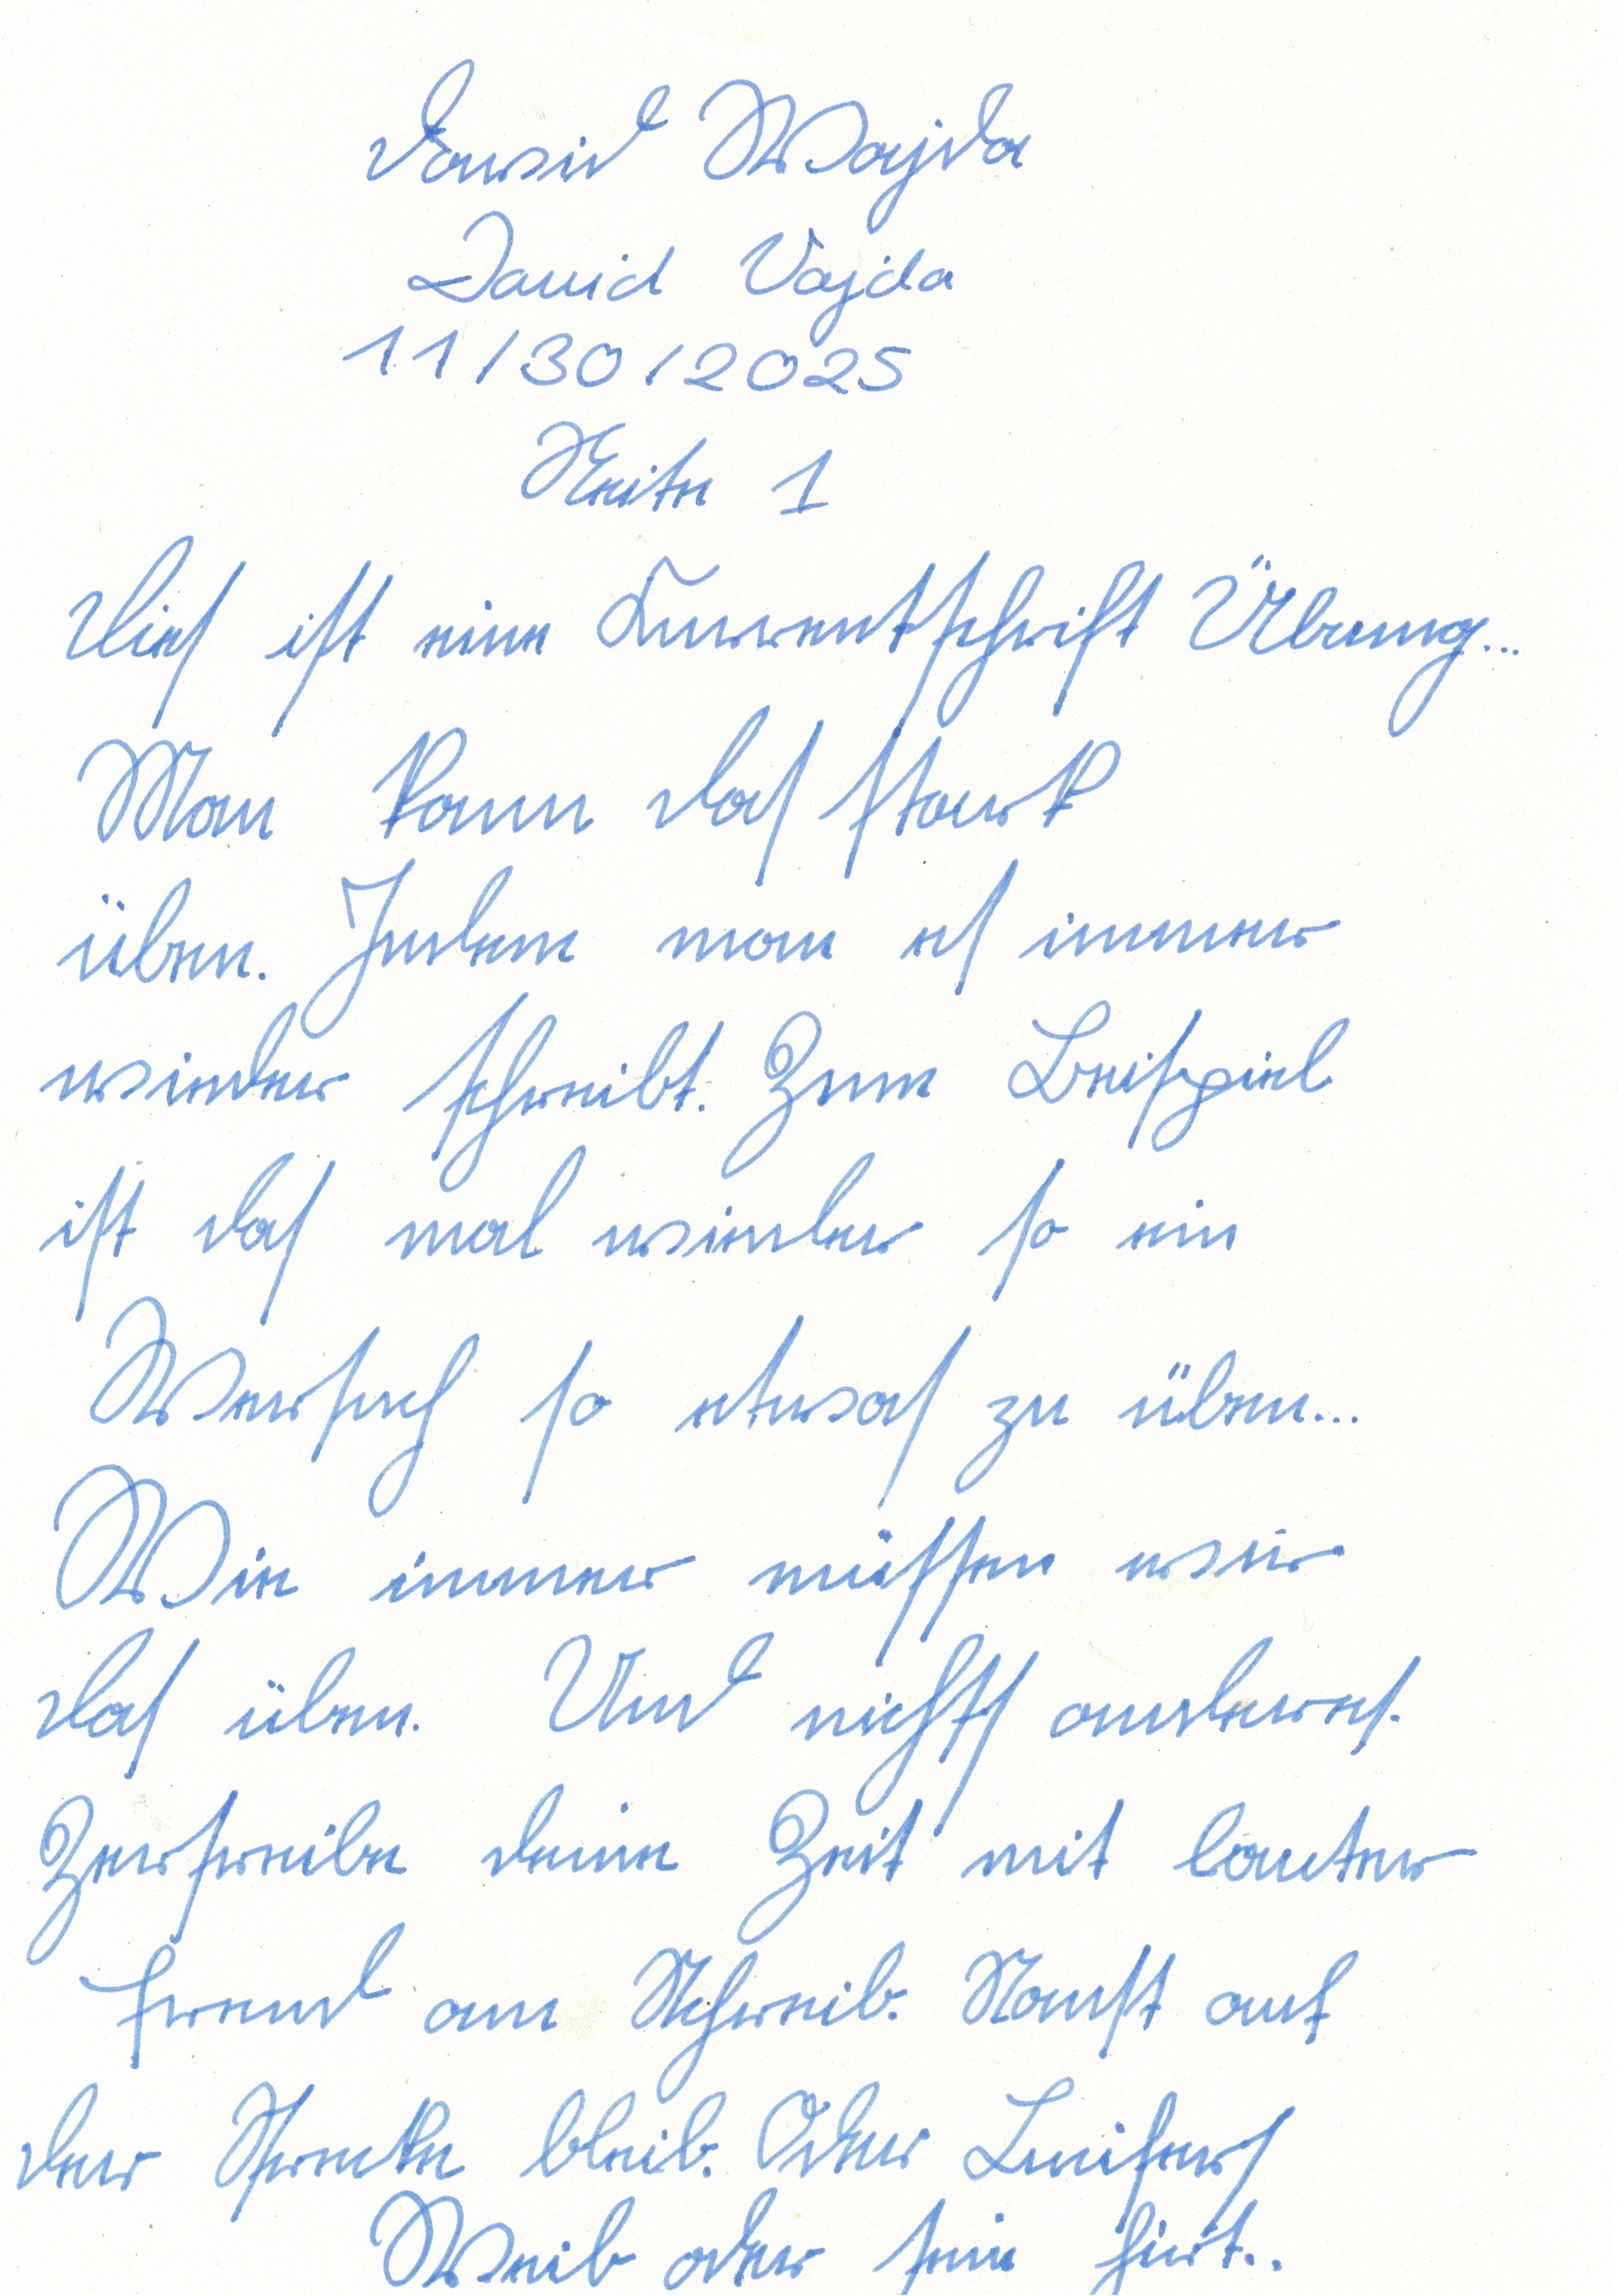 David Vajda
David Vajda
11/30/2025
Seite 1
Dies ist eine Kurrentschrift Übung...
Man kann das stark
üben. Indem man es immer
wieder schreibt. Zum Beispiel
ist das mal wieder so ein
Versuch so etwas zu üben...
Wie immer müssen wir
das üben. Und nichts anderes.
deine Zeit mit lauter
Freud am Schreib. Sonst auf
der Strecke bleib. Oder Luzifers
Weib oder sein